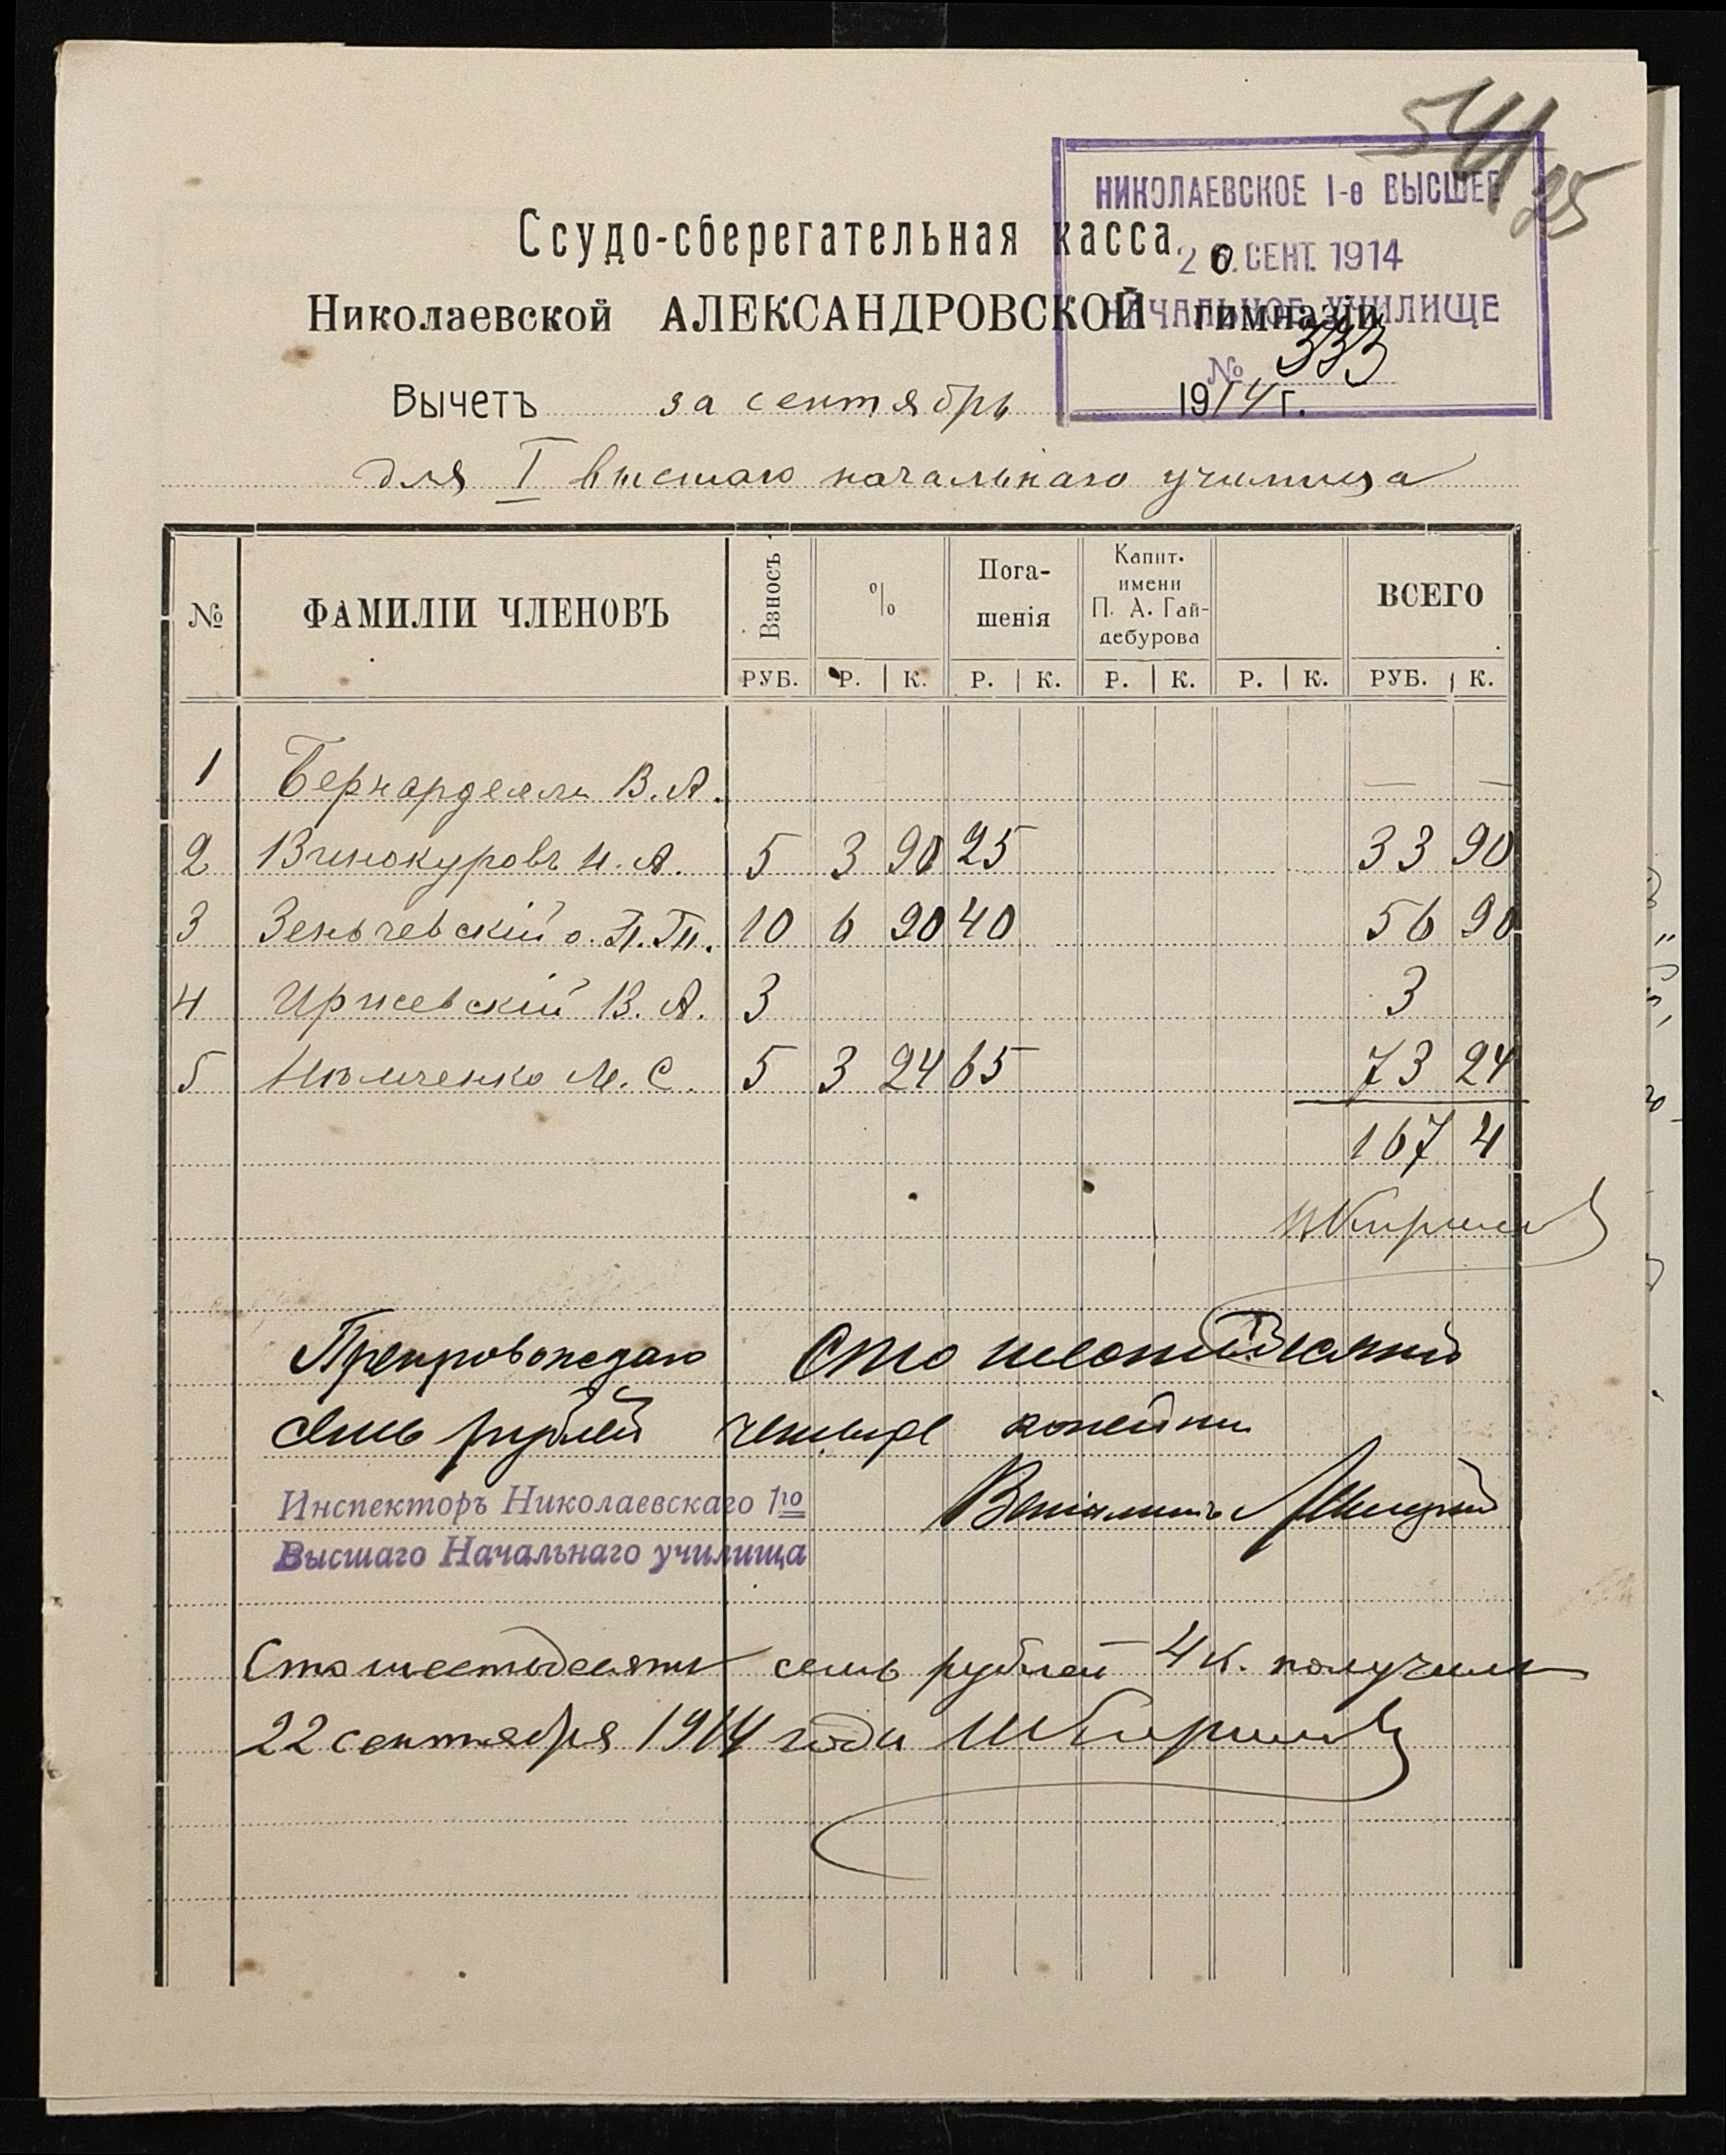 541
25
НИКОЛАЕВСКОЕ 1-е ВЫСШЕЕ
Ссудо-сберегательная касса
20. СЕНТ. 1914
Николаевской АЛЕКСАНДРОВСКОЙ гимназіи
НАЧАЛЬНОЕ УЧИЛИЩЕ
№ 333
Вычетъ за сентябрь 1914 г.
для I высшаго начальнаго училища
№ ФАМИЛІИ ЧЛЕНОВЪ Взносъ % Пога-шенія Капит. имени П. А. Гай-дебурова ВСЕГО
РУБ. Р. К. Р. К. Р. К. Р. К. РУБ. К.
1 Бернарделли В. А. — —
2 Винокуровъ И. А. 5 3 90 25 33 90
3 Зеньчевскій о. П. П. 10 6 90 40 56 90
4 Иржевскій В. А. 3 3
5 М. С. 5 3 24 65 73 24
167 4
Препровождаю Сто шестьдесятъ
семь рублей четыре копейки
Инспекторъ Николаевскаго 1го
Высшаго Начальнаго училища
Сто шестьдесятъ семь рублей 4 к. получилъ
22 сентября 1914 года